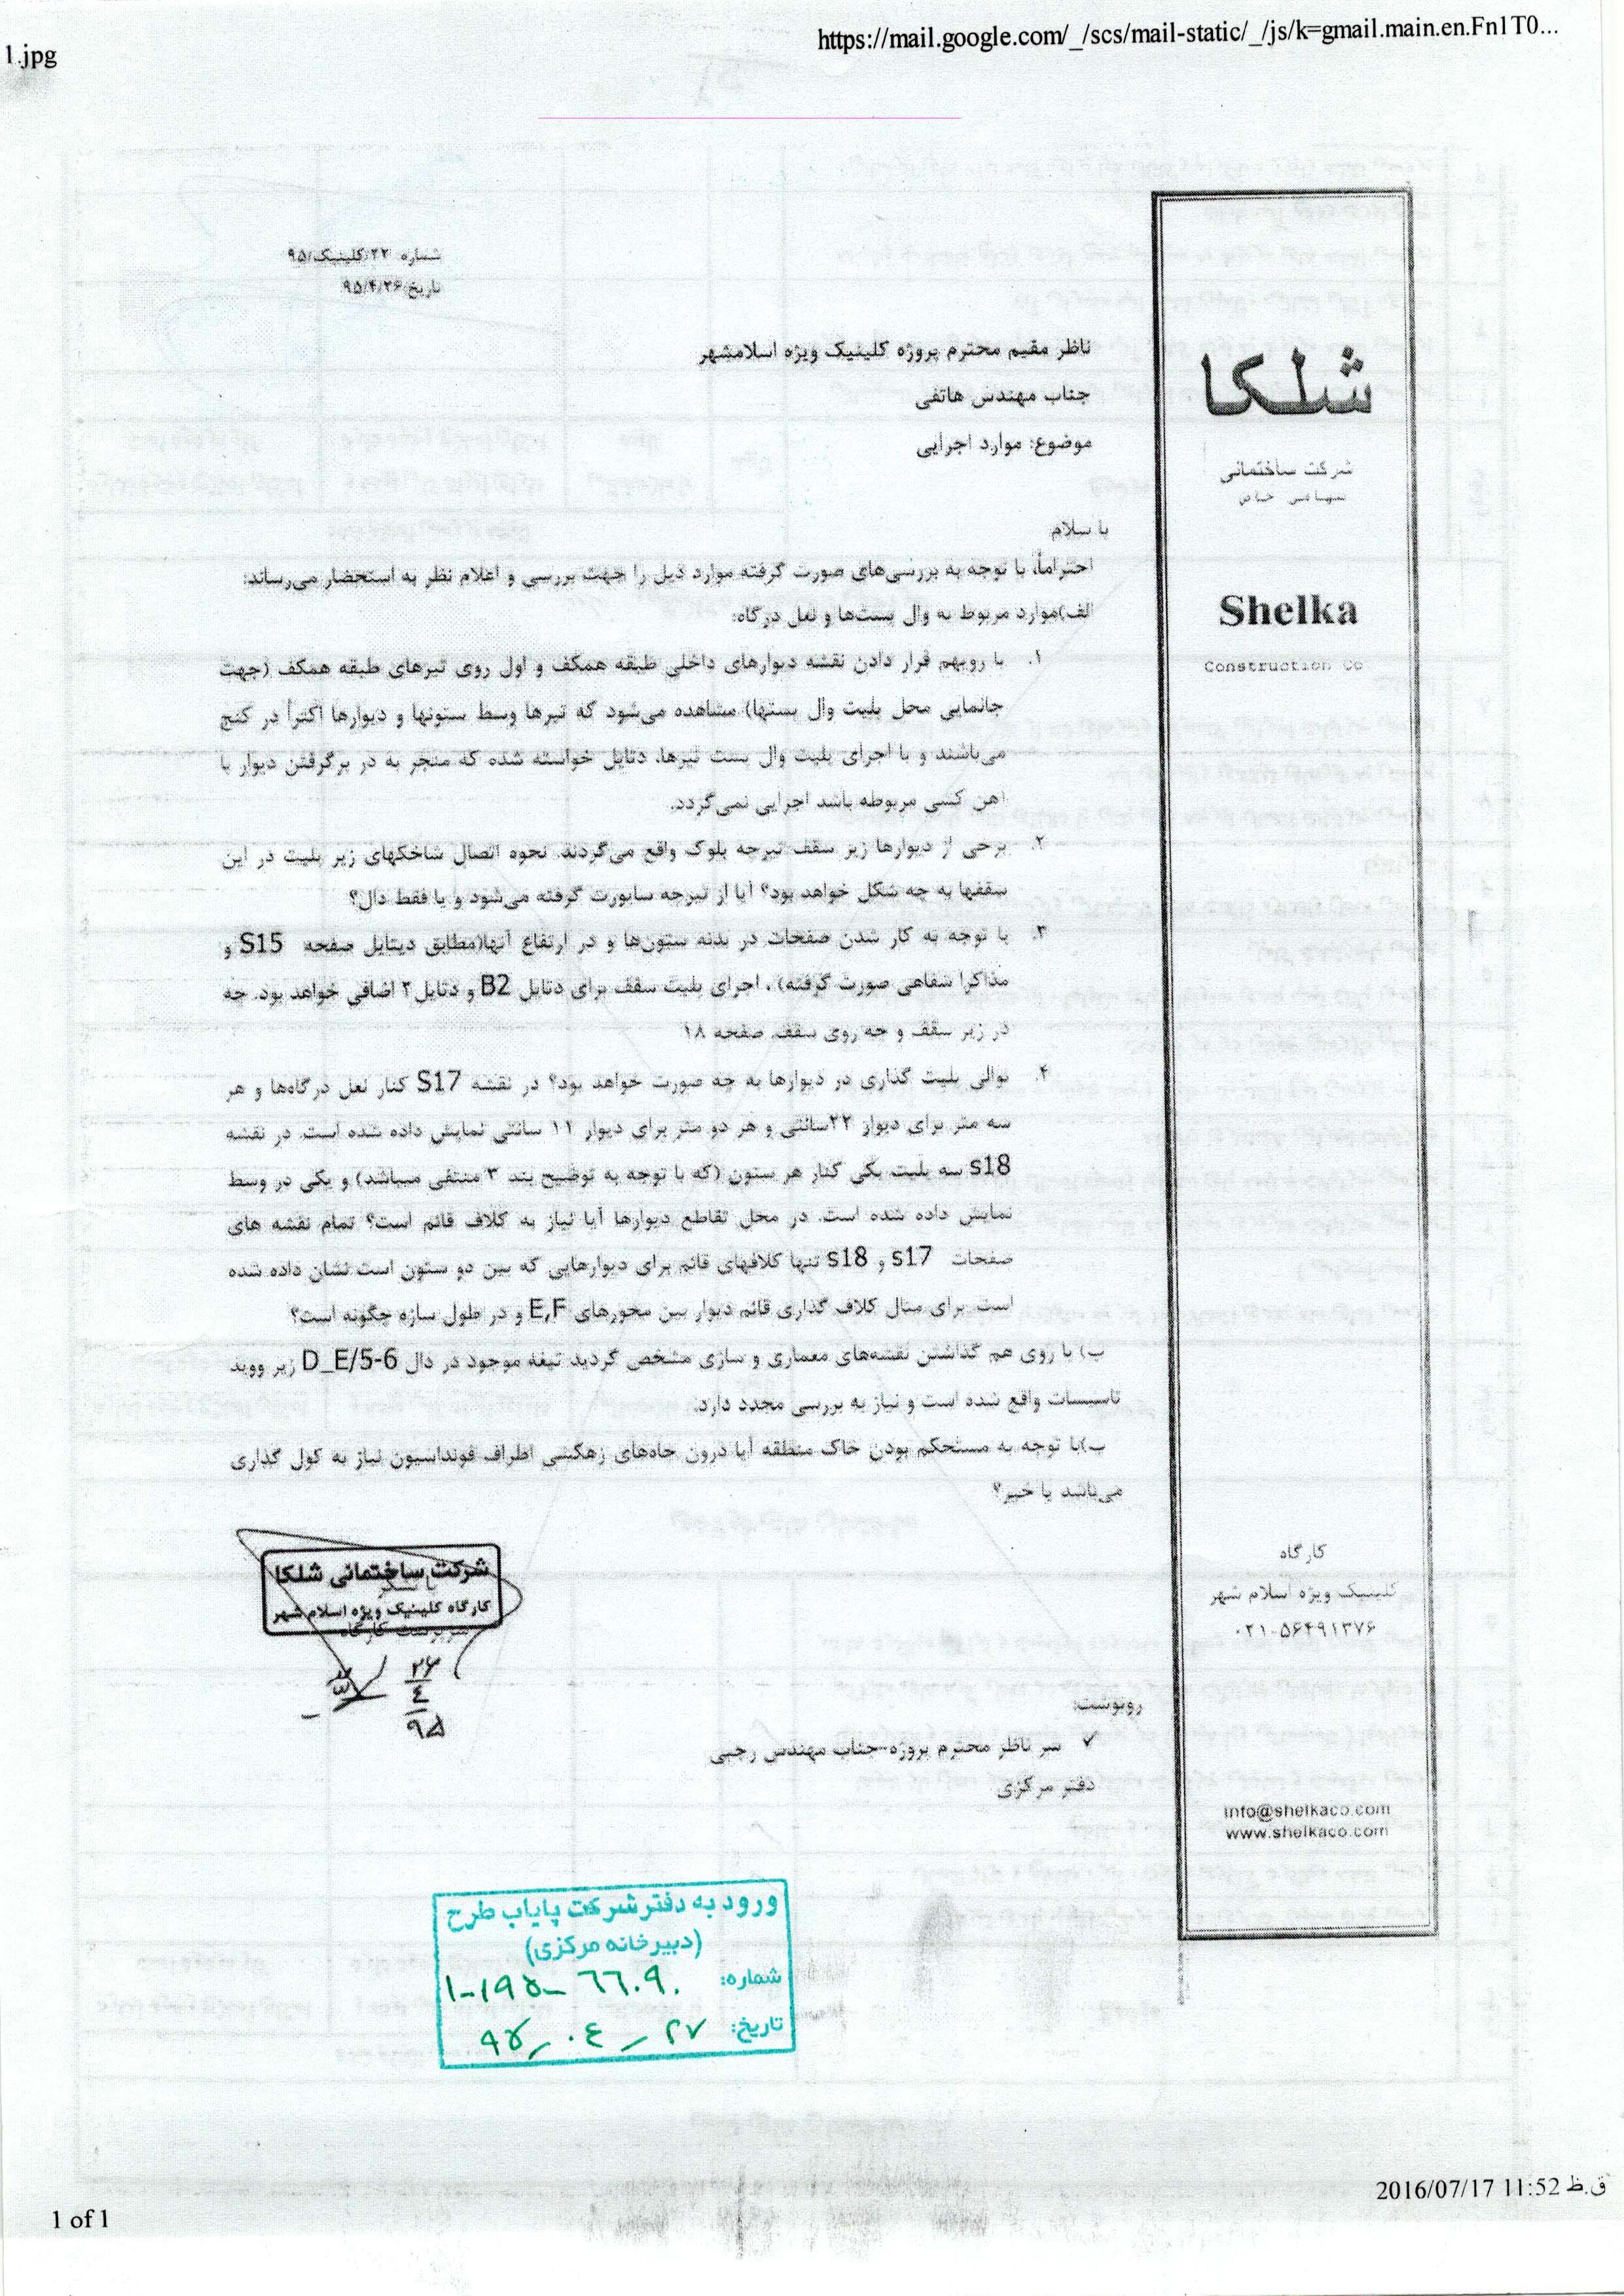 https://mail.google.com/_/scs/mail-static/_/js/k=gmail.main.en.Fn1T0...
1.jpg
شماره ۲۲/کلینیک/۹۵
تاریخ:۹۵/۴/۲۶
ناظر مقیم محترم پروژه کلینیک ویژه اسلامشهر
جناب مهندس هاتفی
موضوع: موارد اجرایی
با سلام
احتراماً، با توجه به بررسی‌های صورت گرفته موارد ذیل را جهت بررسی و اعلام نظر به استحضار می‌رساند:
الف)موارد مربوط به وال پست‌ها و نعل درگاه:
۱. با رویهم قرار دادن نقشه دیوارهای داخلی طبقه همکف و اول روی تیرهای طبقه همکف (جهت
جانمایی محل پلیت وال پستها) مشاهده می‌شود که تیرها وسط ستونها و دیوارها اکثراً در کنج
می‌باشند و با اجرای پلیت وال پست تیرها، دتایل خواسته شده که منجر به در برگرفتن دیوار با
آهن کشی مربوطه باشد اجرایی نمی‌گردد.
۲. برخی از دیوارها زیر سقف تیرچه بلوک واقع می‌گردند. نحوه اتصال شاخکهای زیر پلیت در این
سقفها به چه شکل خواهد بود؟ آیا از تیرچه ساپورت گرفته می‌شود و یا فقط دال؟
۳. با توجه به کار شدن صفحات در بدنه ستون‌ها و در ارتفاع آنها(مطابق دیتایل صفحه S15 و
مذاکرا شفاهی صورت گرفته) ، اجرای پلیت سقف برای دتایل B2 و دتایل۲ اضافی خواهد بود. چه
در زیر سقف و چه روی سقف. صفحه ۱۸
۴. توالی پلیت گذاری در دیوارها به چه صورت خواهد بود؟ در نقشه S17 کنار نعل درگاه‌ها و هر
سه متر برای دیوار ۲۲سانتی و هر دو متر برای دیوار ۱۱ سانتی نمایش داده شده است. در نقشه
s18 سه پلیت یکی کنار هر ستون (که با توجه به توضیح بند ۳ منتفی میباشد) و یکی در وسط
نمایش داده شده است. در محل تقاطع دیوارها آیا نیاز به کلاف قائم است؟ تمام نقشه های
صفحات s17 و s18 تنها کلافهای قائم برای دیوارهایی که بین دو ستون است نشان داده شده
است برای مثال کلاف گذاری قائم دیوار بین محورهای E,F و در طول سازه چگونه است؟
ب) با روی هم گذاشتن نقشه‌های معماری و سازی مشخص گردید تیغه موجود در دال D_E/5-6 زیر ووید
تاسیسات واقع شده است و نیاز به بررسی مجدد دارد.
پ)با توجه به مستحکم بودن خاک منطقه آیا درون چاه‌های زهکشی اطراف فونداسیون نیاز به کول گذاری
می‌باشد یا خیر؟
شرکت ساختمانی شلکا
کارگاه کلینیک ویژه اسلام شهر
سرپرست کارگاه
۲۶
۴
۹۵
رونوشت:
✓ سر ناظر محترم پروژه-جناب مهندس رجبی
دفتر مرکزی
شلکا
شرکت ساختمانی
سهامی خاص
Shelka
Construction Co
کارگاه
کلینیک ویژه اسلام شهر
۰۲۱-۵۶۴۹۱۳۷۶
info@shelkaco.com
www.shelkaco.com
ورود به دفتر شرکت پایاب طرح
(دبیرخانه مرکزی)
شماره: ۱-۱۹۵-۶۶۰۹۰
تاریخ: ۹۵٫۰۴٫۲۷
2016/07/17 11:52 ق.ظ
1 of 1